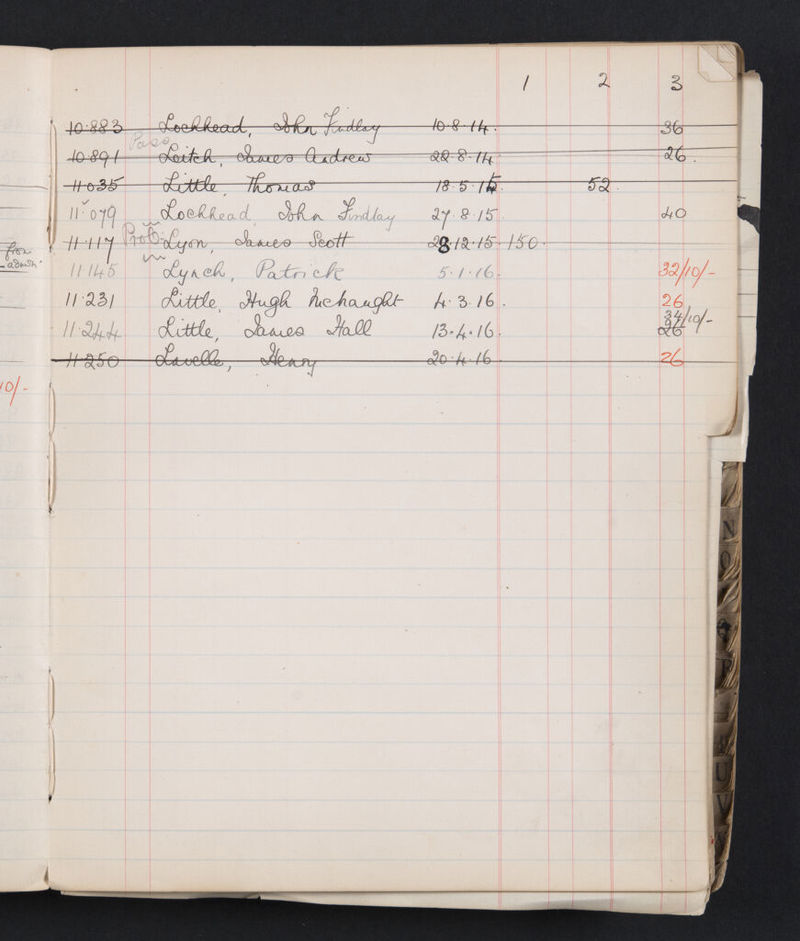 1 2 3
10·883 Lochhead, John Findlay 10·8·14. 36
Pass
10·891 Leitch, James Andrew 22·8·14 26.
11035 Little, Thomas 18·5·15. 52.
11·079 Lochhead, John Findlay 27·8·15 40
11·117 Prob. Lyon, James Scott 28·12·15· 150·
from
11145 Lynch, Patrick 5·1·16. 32/10/-
11·231 Little, Hugh McNaught 4·3·16. 26
34/10/-
11·244 Little, James Hall 13·4·16. 26
11·250 Lavelle, Henry 20·4·16 26
10/-
N
O
P
U
V